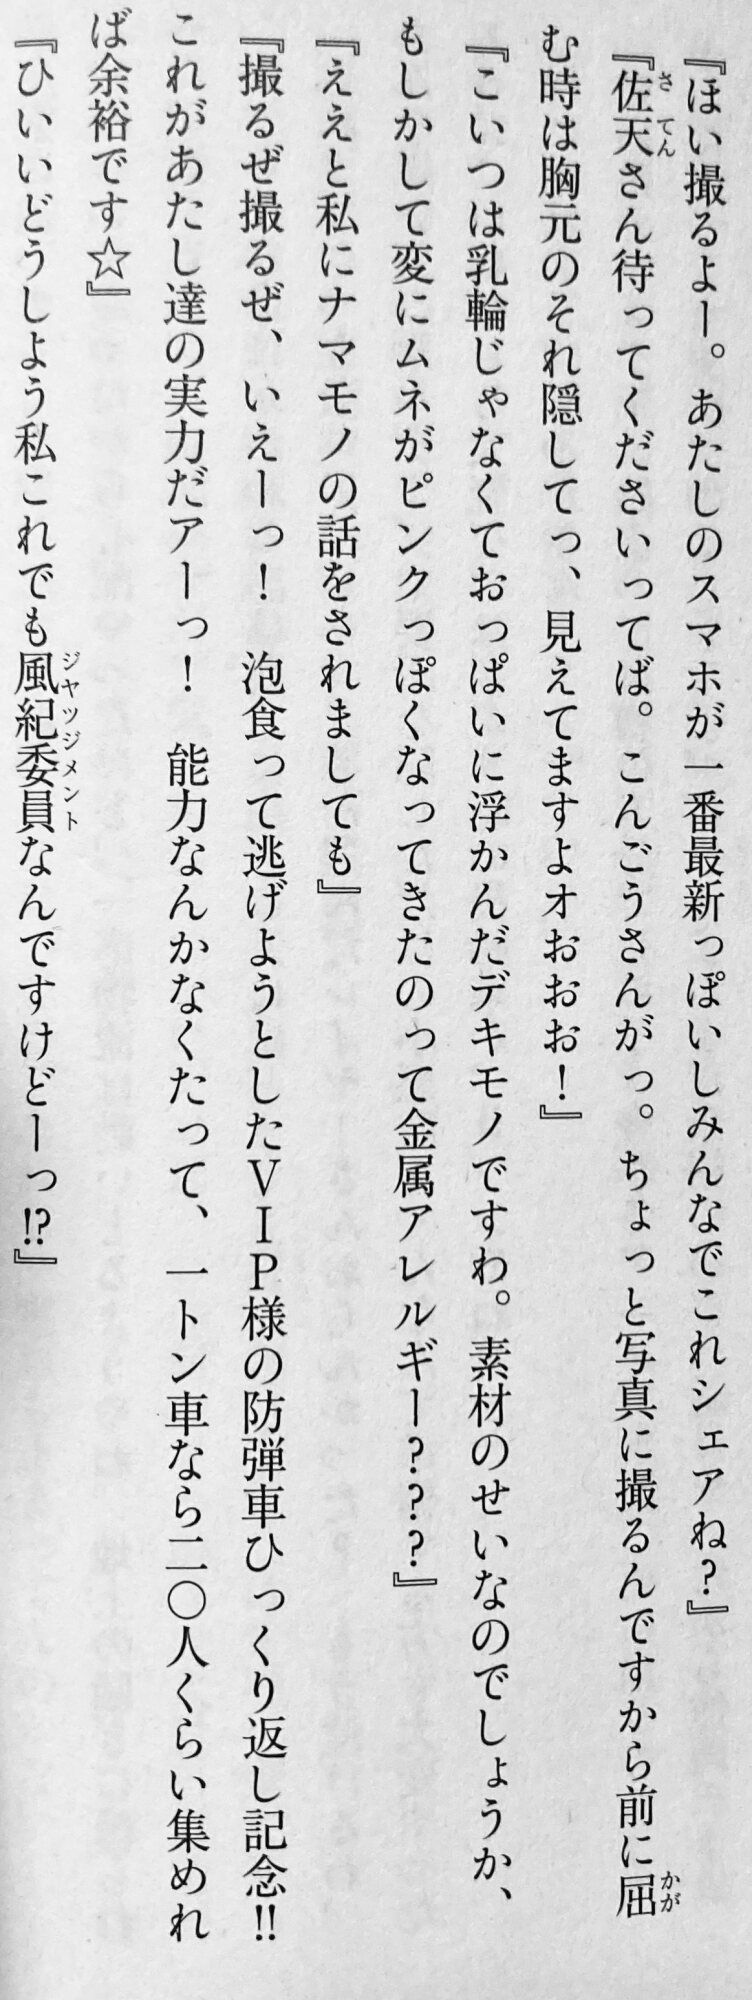 『ほい撮るよー。あたしのスマホが一番最新っぽいしみんなでこれシェアね？』
『佐天さん待ってくださいってば。こんごうさんがっ。ちょっと写真に撮るんですから前に屈
む時は胸元のそれ隠してっ、見えてますよオおおお！』
『こいつは乳輪じゃなくておっぱいに浮かんだデキモノですわ。素材のせいなのでしょうか、
もしかして変にムネがピンクっぽくなってきたのって金属アレルギー？？？』
『ええと私にナマモノの話をされましても』
『撮るぜ撮るぜ、いえーっ！　泡食って逃げようとしたＶＩＰ様の防弾車ひっくり返し記念!!
これがあたし達の実力だアーっ！　能力なんかなくたって、一トン車なら二〇人くらい集めれ
ば余裕です☆』
『ひいいどうしよう私これでも風紀委員なんですけどーっ!?』